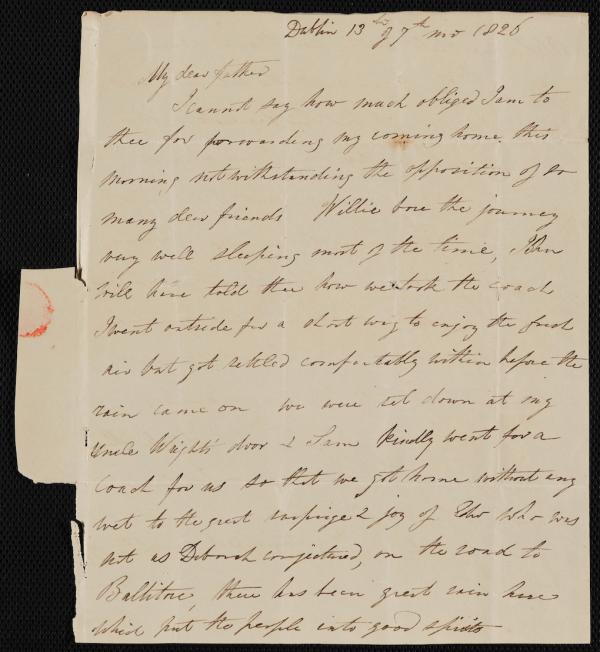 Dublin 13th of 7th mo 1826
My dear father
I cannot say how much obliged I am to
thee for forwarding my coming home this
morning notwithstanding the opposition of so
many dear friends Willie bore the journey
very well sleeping most of the time, John
will have told thee how we took the coach
I went outside for a short way to enjoy the fresh
air but got settled comfortably within before the
rain came on we were set down at my
Uncle Wright's door & Sam kindly went for a
Coach for us so that we got home without any
wet to the great surprize & joy of Tho who was
not as Deborah conjectured, on the road to
Ballitore, there has been great rain here
which put the people into good spirits